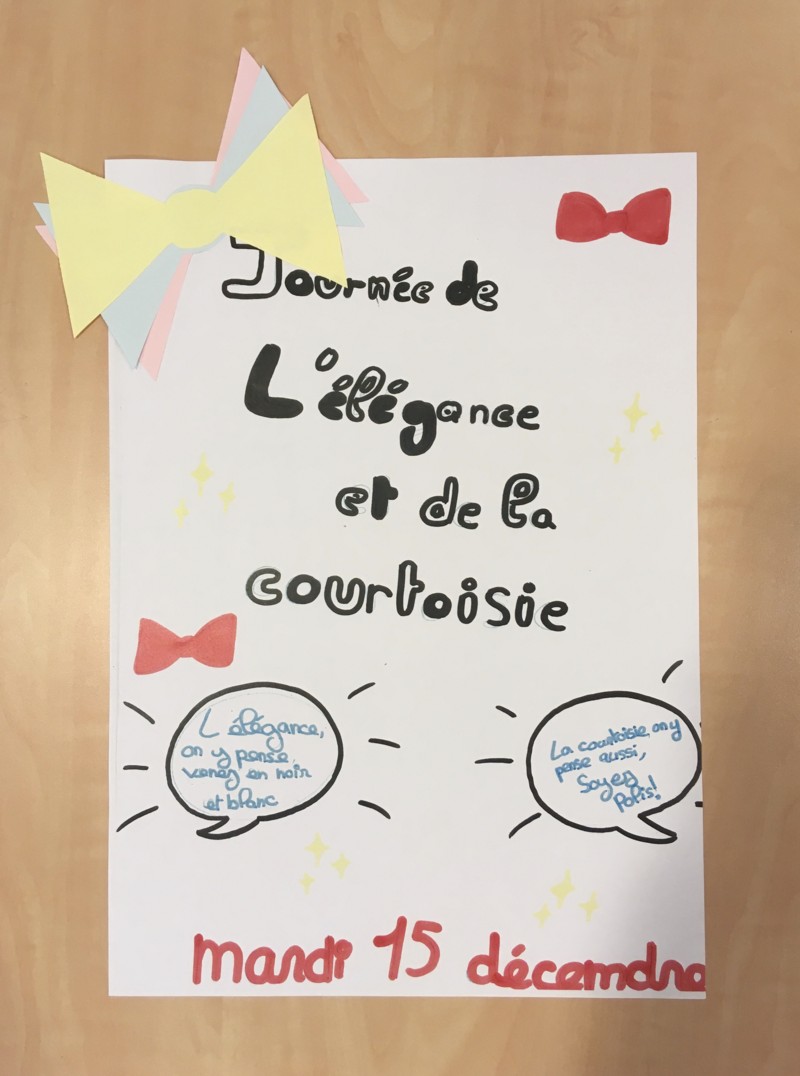 Journée de
L'élégance
et de la
courtoisie
L'élégance,
on y pense,
venez en noir
et blanc
La courtoisie, on y
pense aussi,
Soyez
Polis!
mardi 15 décemdre